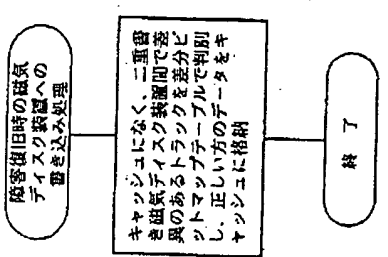 障害復旧時の磁気
ディスク装置への
書き込み処理
キャッシュになく、二重書
き磁気ディスク装置間で差
異のあるトラックを差分ビ
ットマップテーブルで判別
し、正しい方のデータをキ
ャッシュに格納
終了